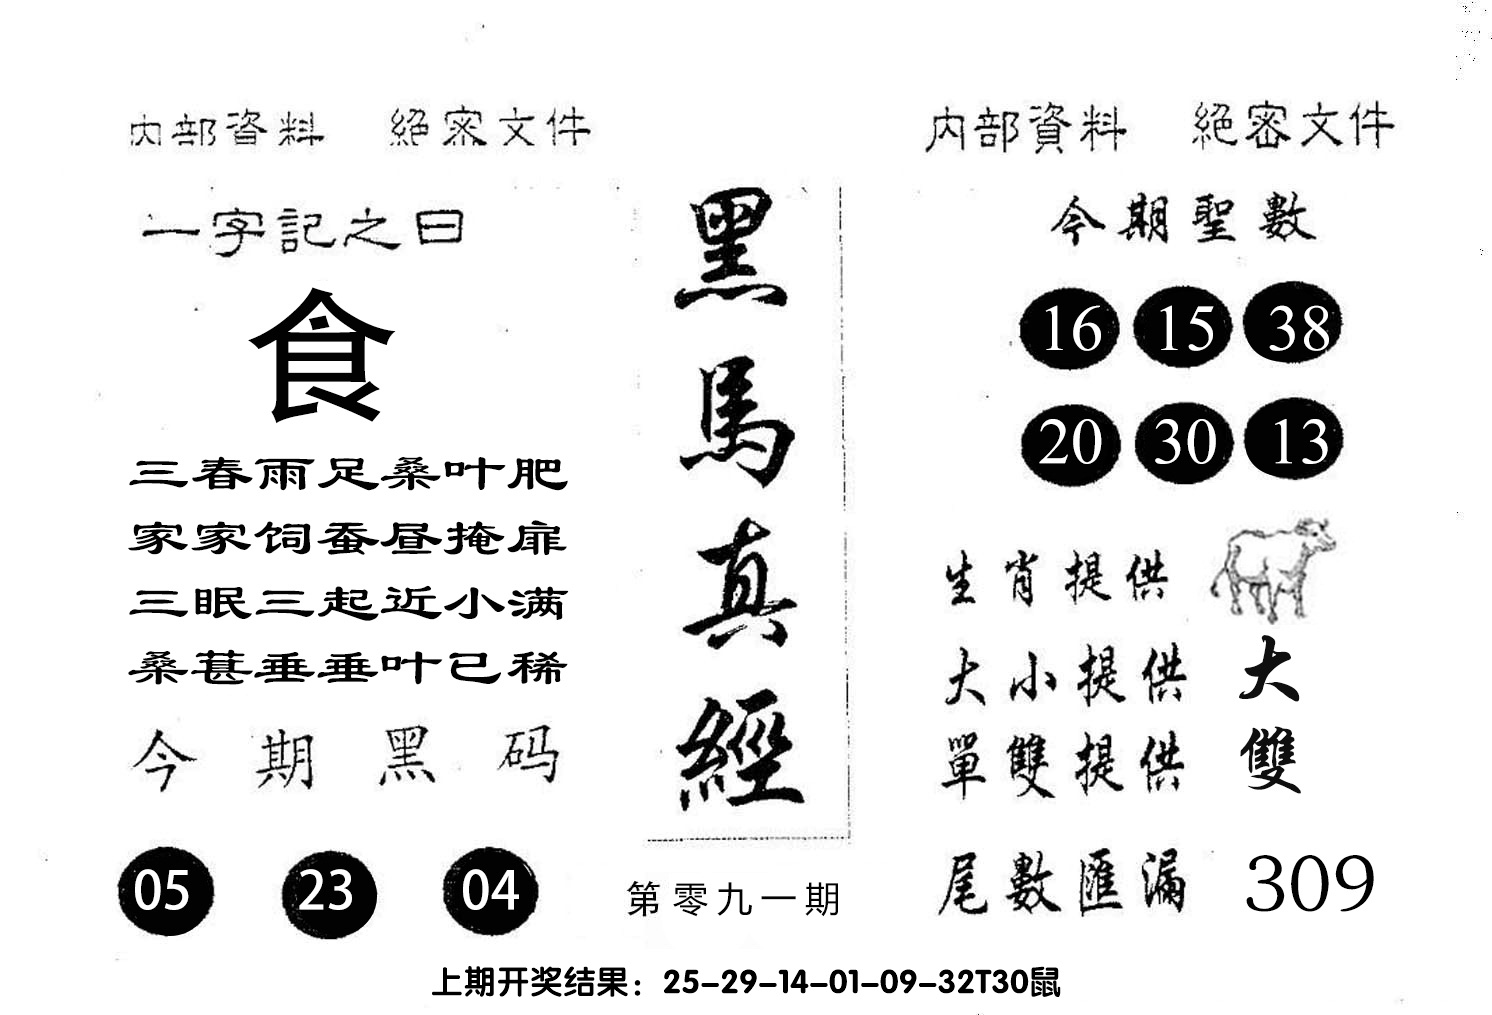 内部資料 絕密文件
一字記之曰
食
三春雨足桑叶肥
家家饲蚕昼掩扉
三眠三起近小满
桑葚垂垂叶已稀
今期黑码
05 23 04
黑馬真經
第零九一期
内部資料 絕密文件
今期聖數
16 15 38
20 30 13
生肖提供
大小提供 大
單雙提供 雙
尾數匯漏 309
上期开奖结果：25-29-14-01-09-32T30鼠